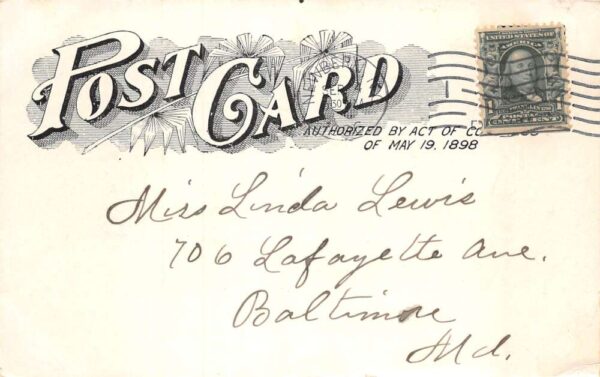 POST CARD
AUTHORIZED BY ACT OF
OF MAY 19, 1898
UNITED STATES OF
AMERICA
Miss Linda Lewis
706 Lafayette Ave.
Baltimore
Md.